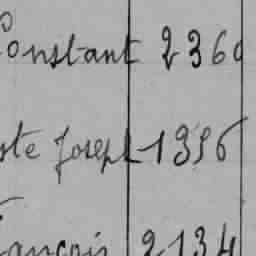 Constant 2360
ste Joseph 1396
ançois 2134